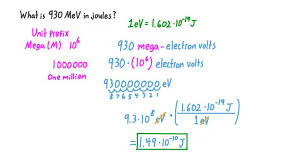 What is 930 MeV in joules?
1eV = 1.602·10⁻¹⁹ J
Unit Prefix
Mega (M) 10⁶
1000000
One million
930 mega-electron volts
930·(10⁶) electron volts
930000000. eV
8 7 6 5 4 3 2 1
9.3·10⁸ eV · (1.602·10⁻¹⁹ J / 1 eV)
= 1.49·10⁻¹⁰ J